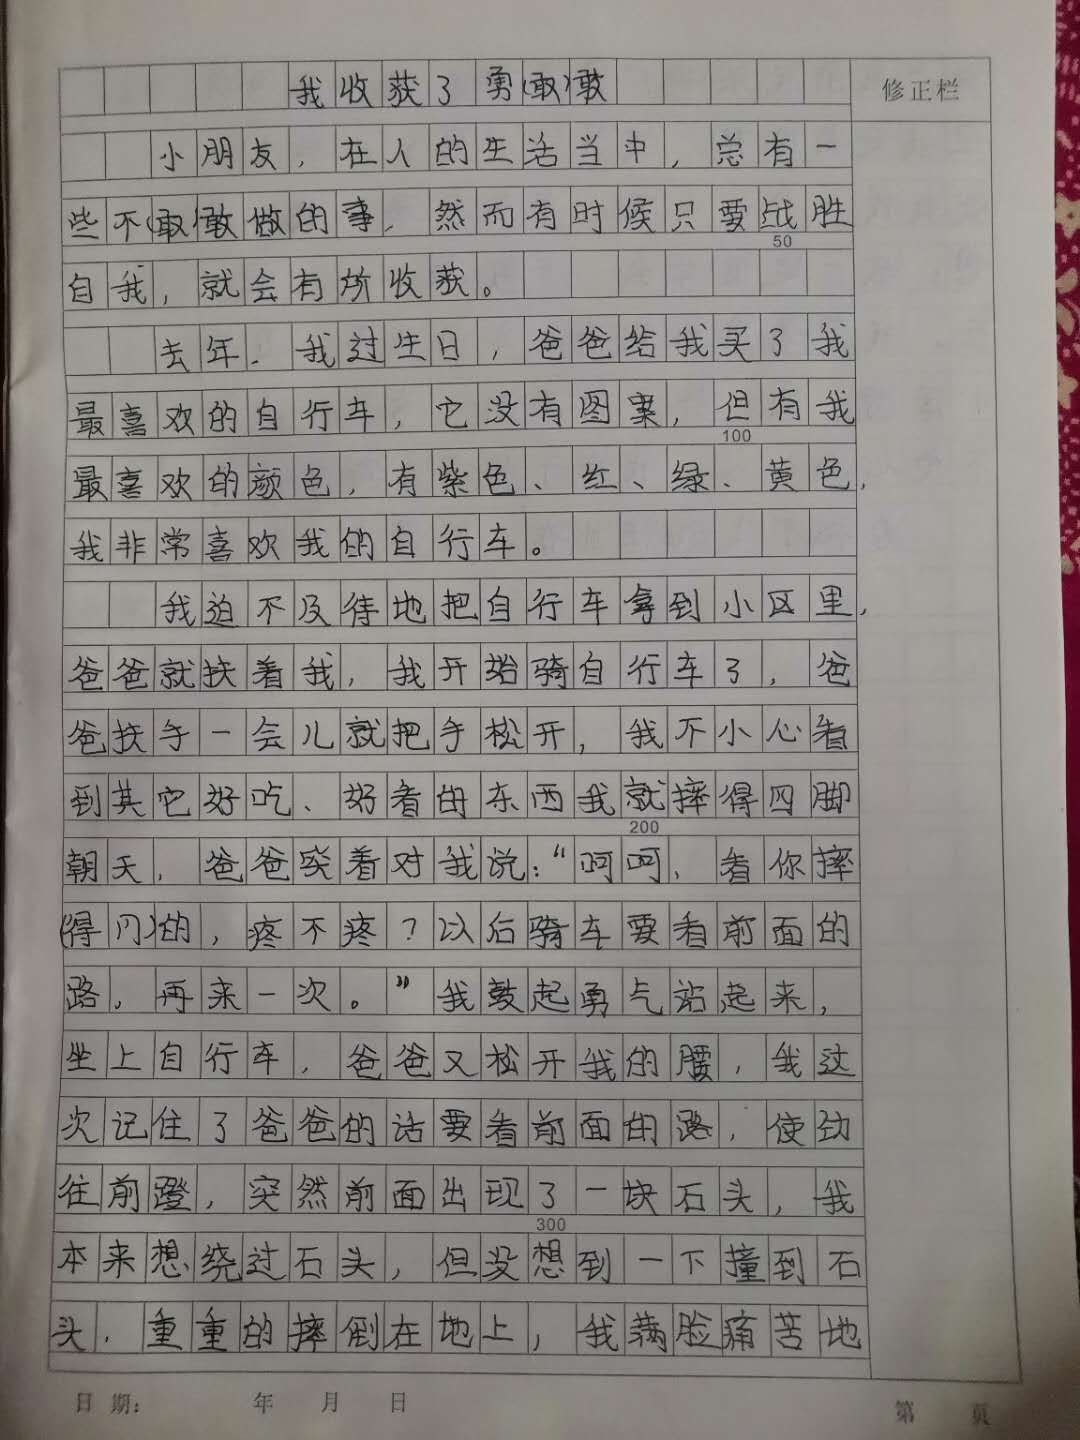 我收获了勇(敢)敢
修正栏
小朋友，在人的生活当中，总有一
些不(敢)敢做的事，然而有时候只要战胜
50
自我，就会有所收获。
去年，我过生日，爸爸给我买了我
最喜欢的自行车，它没有图案，但有我
100
最喜欢的颜色，有紫色、红、绿、黄色，
我非常喜欢我的自行车。
我迫不及待地把自行车拿到小区里，
爸爸就扶着我，我开始骑自行车了，爸
爸扶手一会儿就把手松开，我不小心看
到其它好吃、好看的东西我就摔得四脚
200
朝天，爸爸笑着对我说：“呵呵，看你摔
(得)的，疼不疼？以后骑车要看前面的
路，再来一次。”我鼓起勇气站起来，
坐上自行车，爸爸又松开我的腰，我这
次记住了爸爸的话要看前面的路，使劲
往前蹬，突然前面出现了一块石头，我
300
本来想绕过石头，但没想到一下撞到石
头，重重的摔倒在地上，我满脸痛苦地
日期： 年 月 日
第 页